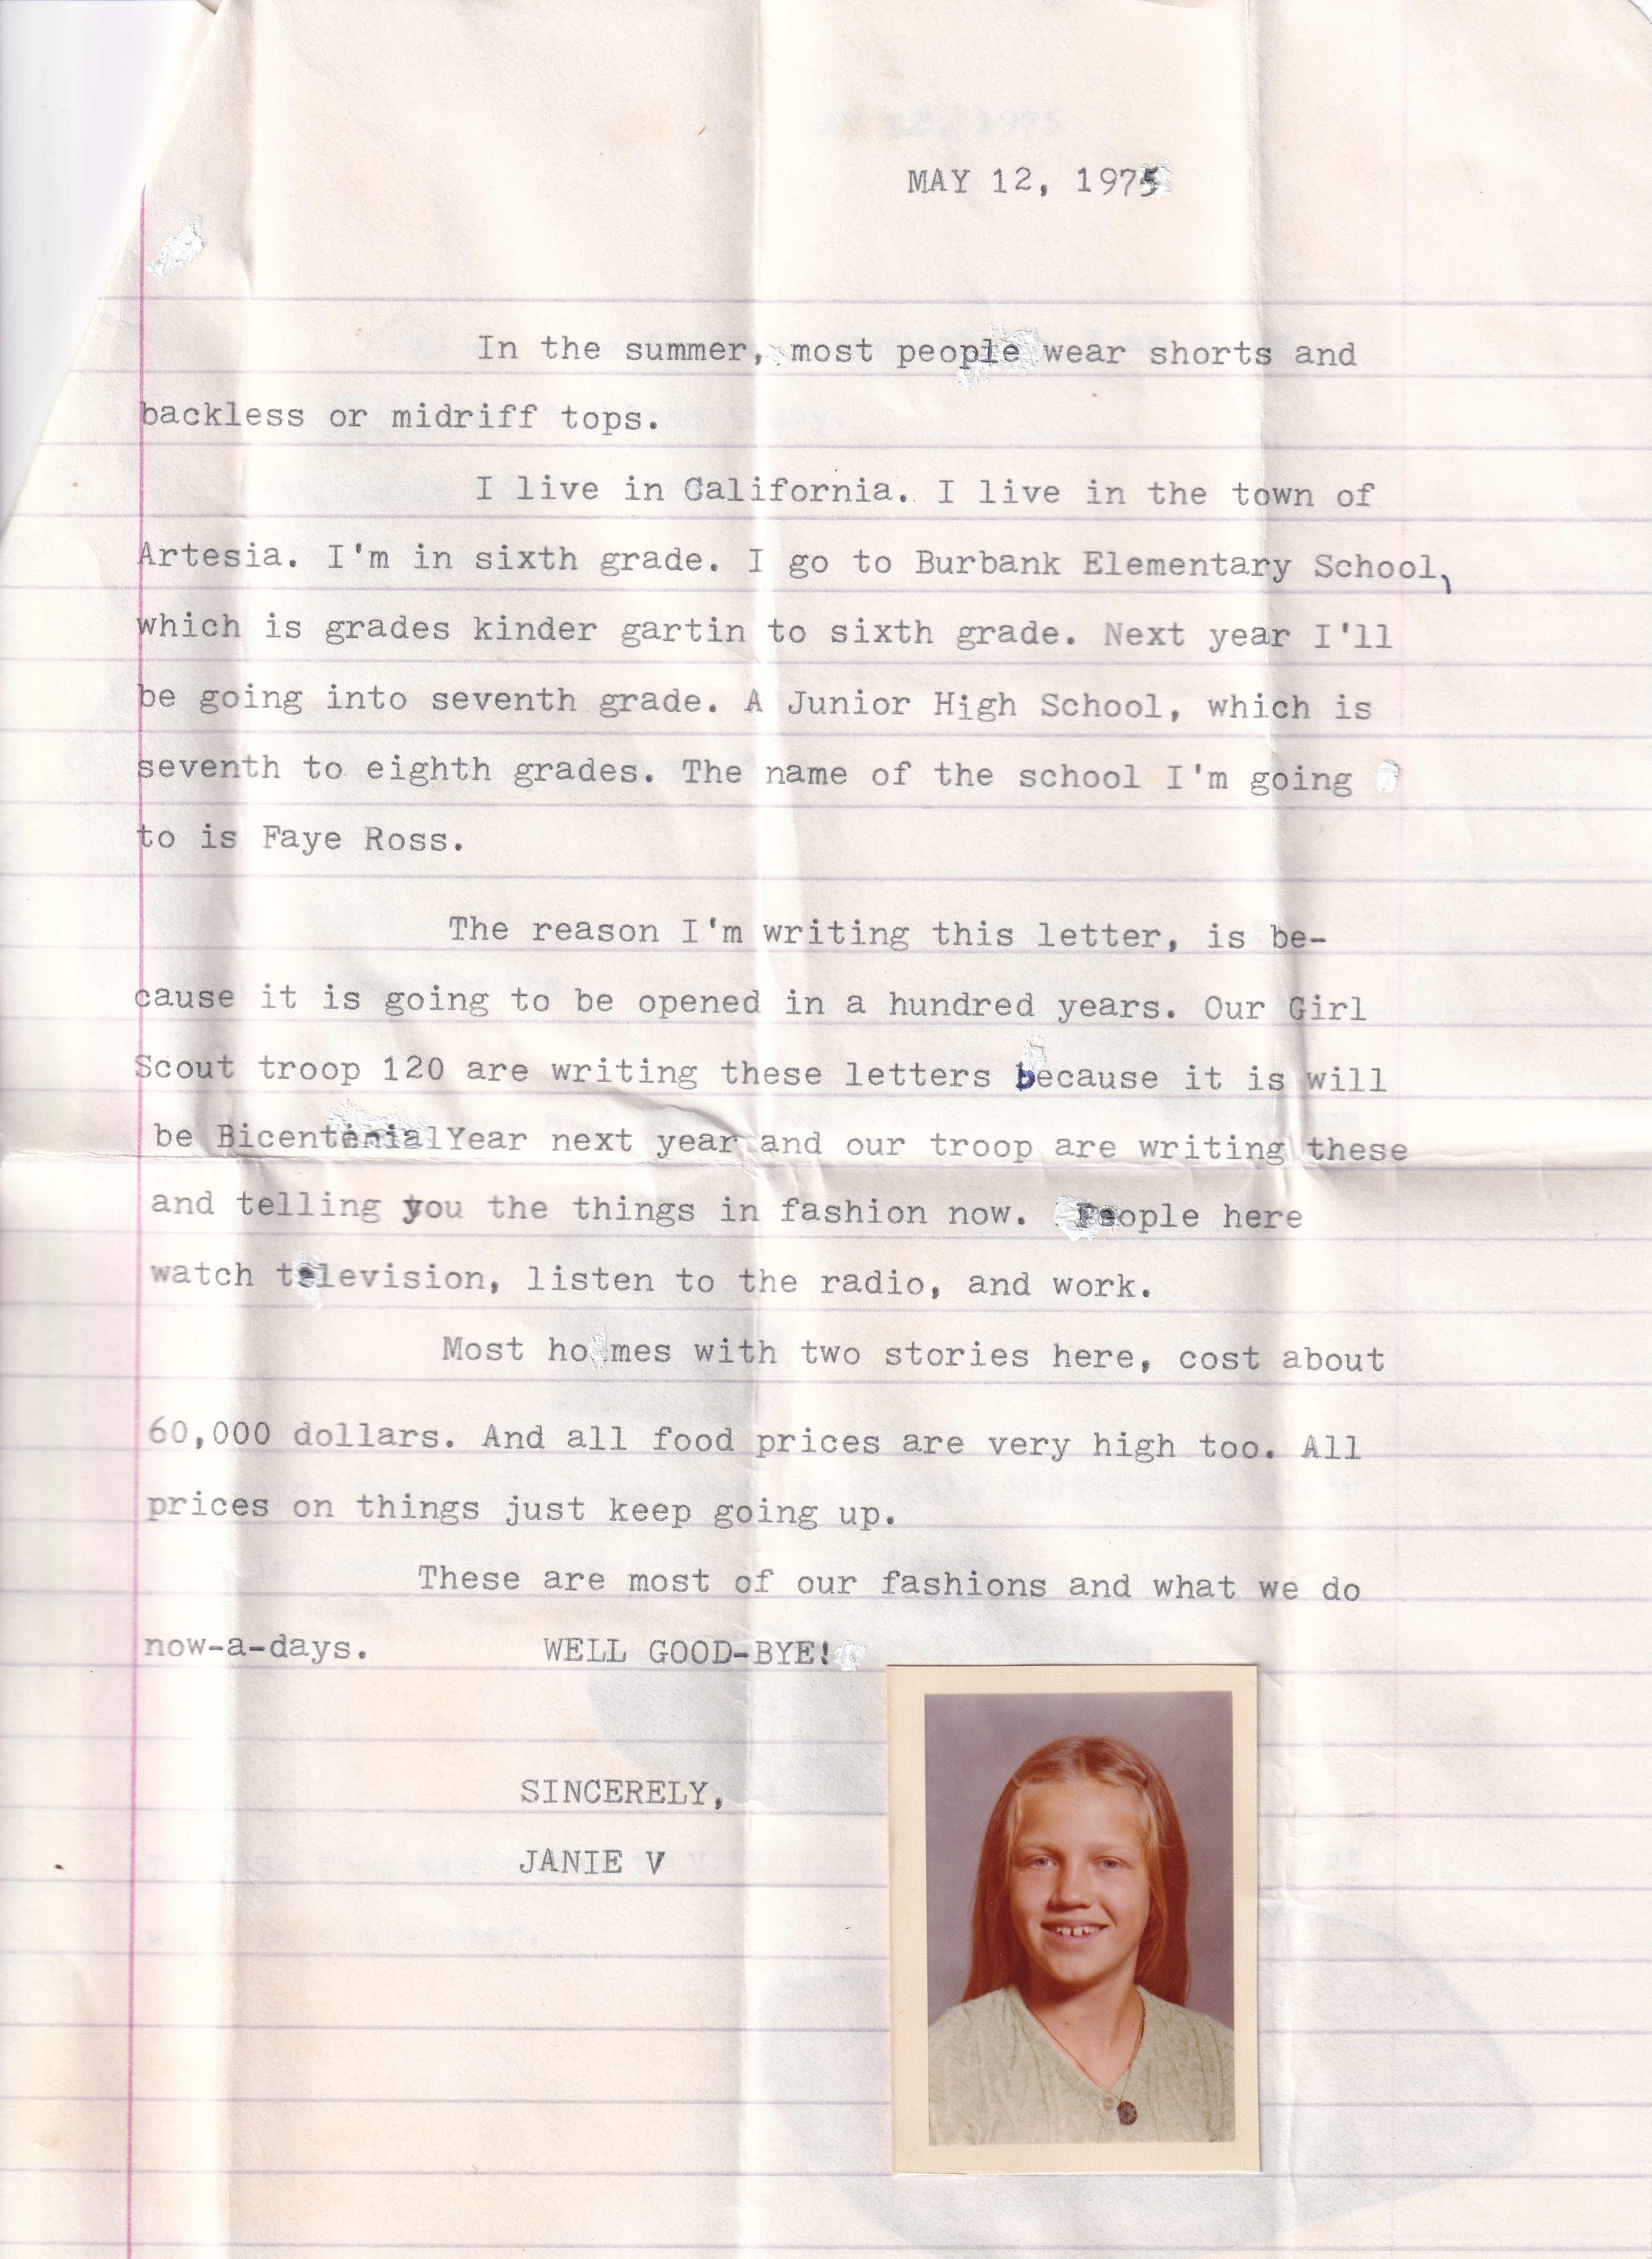 MAY 12, 1975
In the summer, most people wear shorts and
backless or midriff tops.
I live in California. I live in the town of
Artesia. I'm in sixth grade. I go to Burbank Elementary School,
which is grades kinder gartin to sixth grade. Next year I'll
be going into seventh grade. A Junior High School, which is
seventh to eighth grades. The name of the school I'm going
to is Faye Ross.
The reason I'm writing this letter, is be-
cause it is going to be opened in a hundred years. Our Girl
Scout troop 120 are writing these letters because it is will
be Bicentenial Year next year and our troop are writing these
and telling you the things in fashion now. People here
watch television, listen to the radio, and work.
Most homes with two stories here, cost about
60,000 dollars. And all food prices are very high too. All
prices on things just keep going up.
These are most of our fashions and what we do
now-a-days. WELL GOOD-BYE!
SINCERELY,
JANIE V